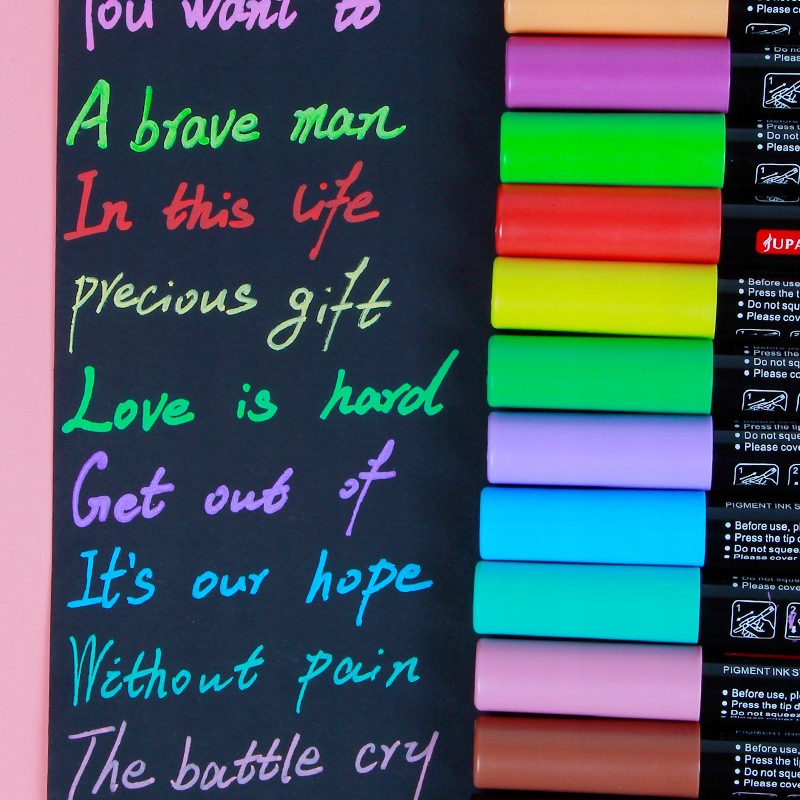 You want to
A brave man
In this life
precious gift
Love is hard
Get out of
It's our hope
Without pain
The battle cry
Please co
Do no
Pleas
1
Press t
Do not
Please
1
Before use
Press the t
Do not squ
Please cov
Press the
Do not sq
Please c
Press the tip
Do not sque
Please cov
1
2
PIGMENT INK S
Before use, p
Press the tip
Do not squee
Please cover
Do not sque
Please cove
1
2
PIGMENT INK S
Before use, pl
Press the tip d
Do not squeez
Please cover t
PIGMENT INK
Before use,
Press the tip
Do not sque
Please co